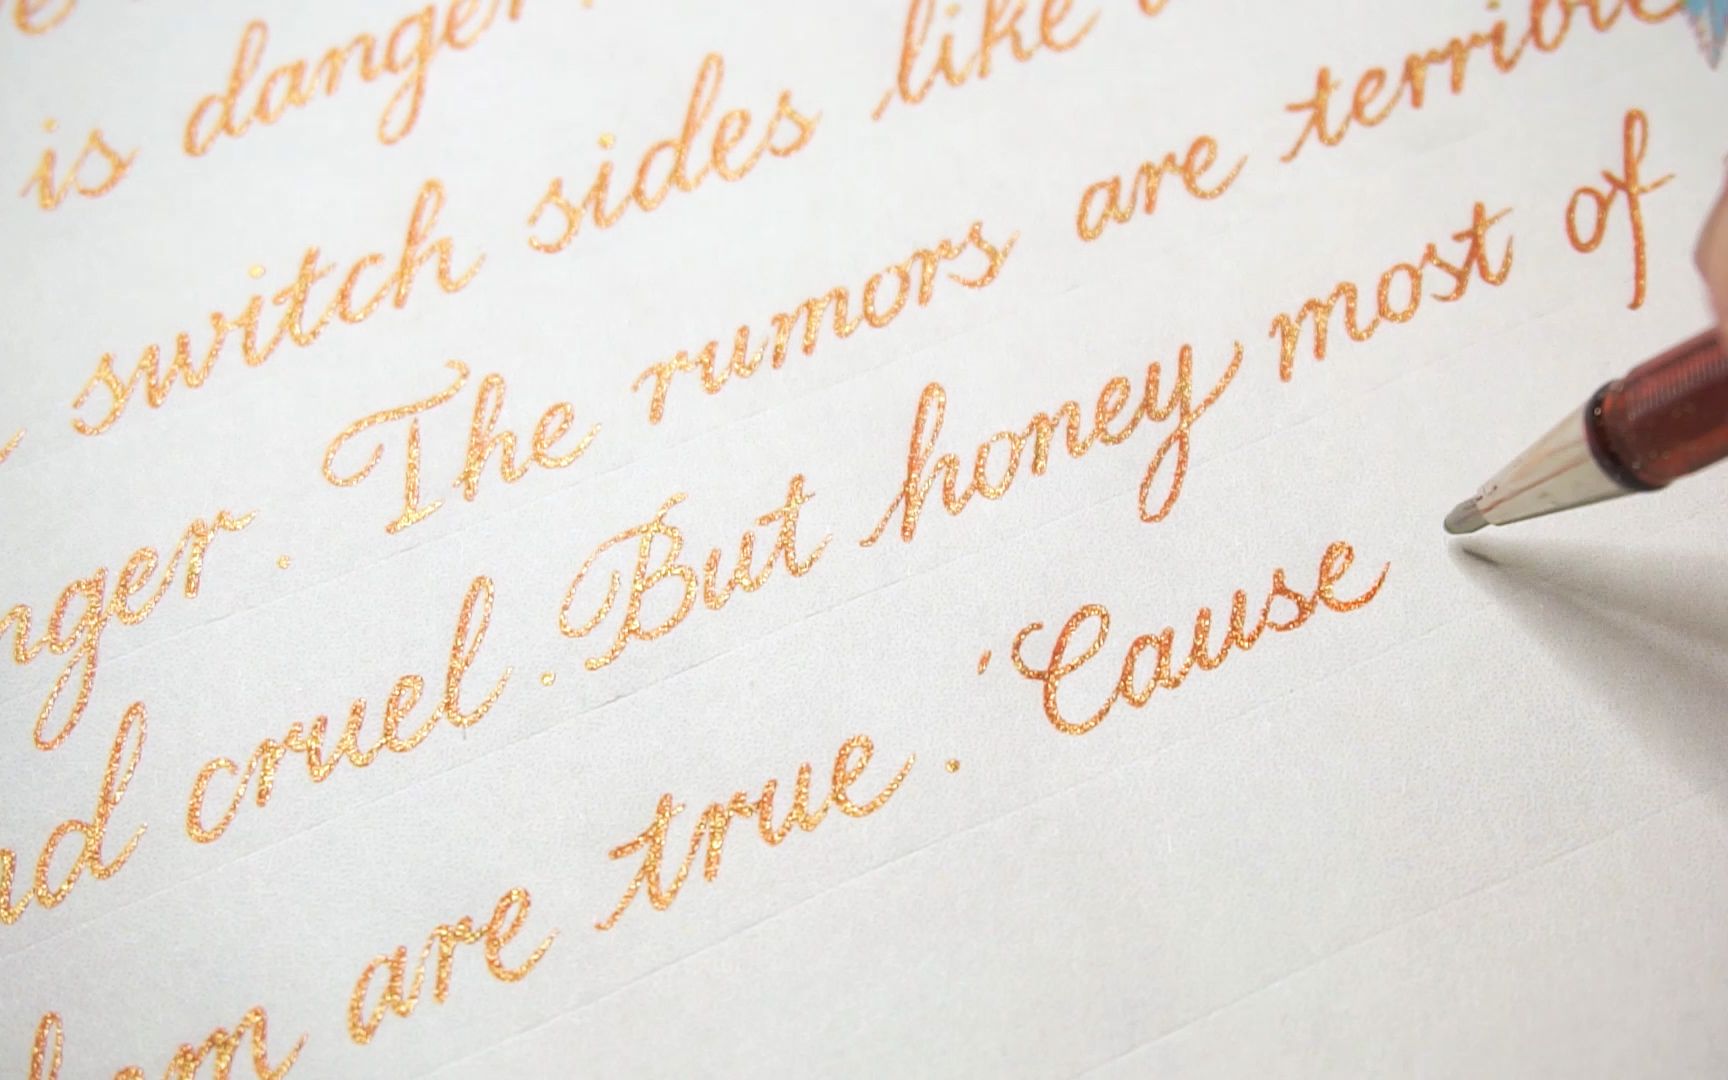 is danger
switch sides like
nger. The rumors are terrible
nd cruel. But honey most of
hem are true. 'Cause